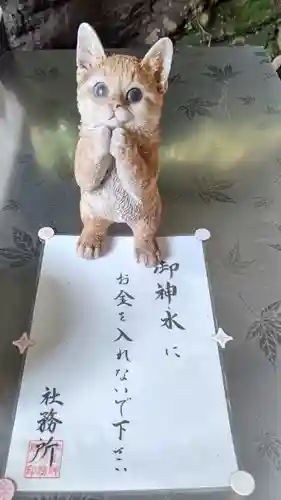 御神水に
お金を入れないで下さい
社務所